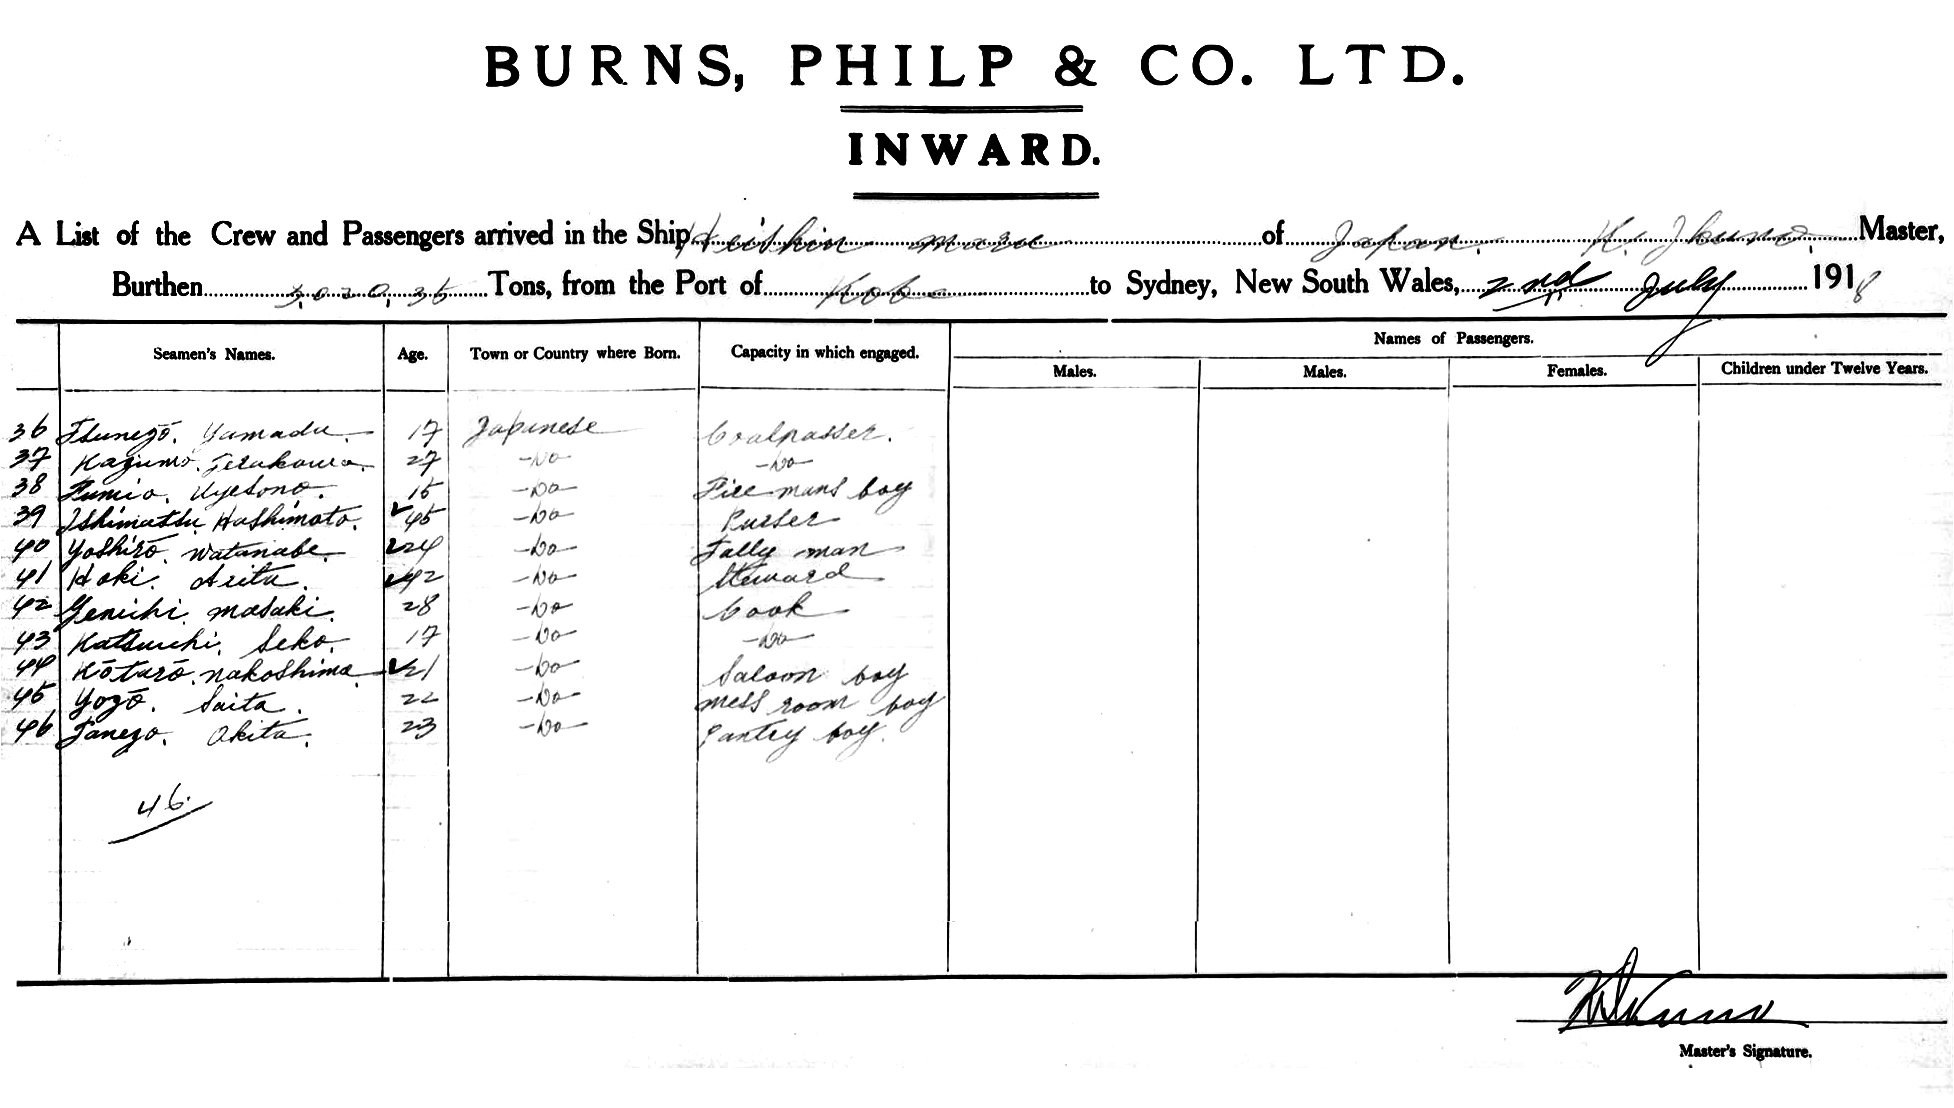 BURNS, PHILP & CO. LTD.
INWARD.
A List of the Crew and Passengers arrived in the Ship Heishin Maru of Japan. K. Ikuno, Master,
Burthen Tons, from the Port of Kobe to Sydney, New South Wales, 2nd July 1918
Names of Passengers.
Seamen's Names. Age. Town or Country where Born. Capacity in which engaged. Males. Males. Females. Children under Twelve Years.
36 Tsunezō. Yamada. 17 Japanese Coalpasser.
37 Kazumo. Terakawa. 27 -Do- -Do-
38 Fumio. Uyesono. 15 -Do- Fire mans boy
39 Ishimatsu Hashimoto. 45 -Do- Purser
40 Yoshirō. Watanabe. 24 -Do- Tally man
41 Hoki. Arita. 42 -Do- Steward
42 Genichi. Masaki. 28 -Do- Cook
43 Katsuichi. Seko. 17 -Do- -Do-
44 Kōtarō. Nakoshima. 21 -Do- Saloon boy
45 Yozō. Saita. 22 -Do- Mess room boy
46 Tanezo. Akita. 23 -Do- Pantry boy.
46.
K Ikuno
Master's Signature.